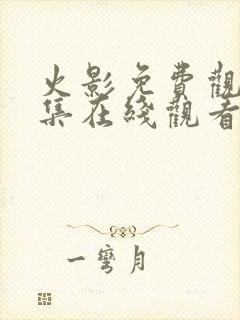 火影免費觀
集在綫觀看
一彎月